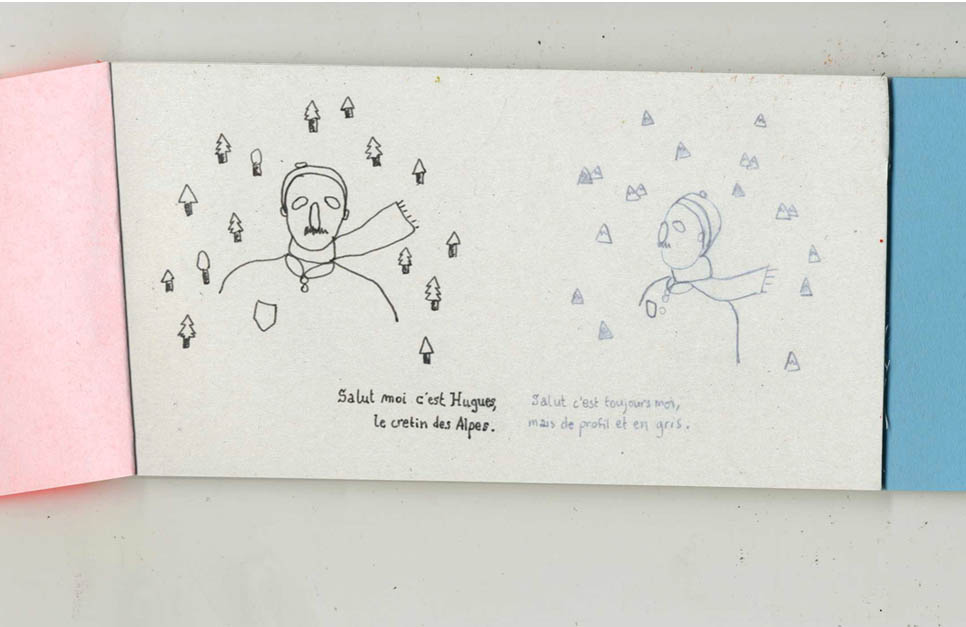 Salut moi c'est Hugues,
le cretin des Alpes.
Salut c'est toujours moi,
mais de profil et en gris.